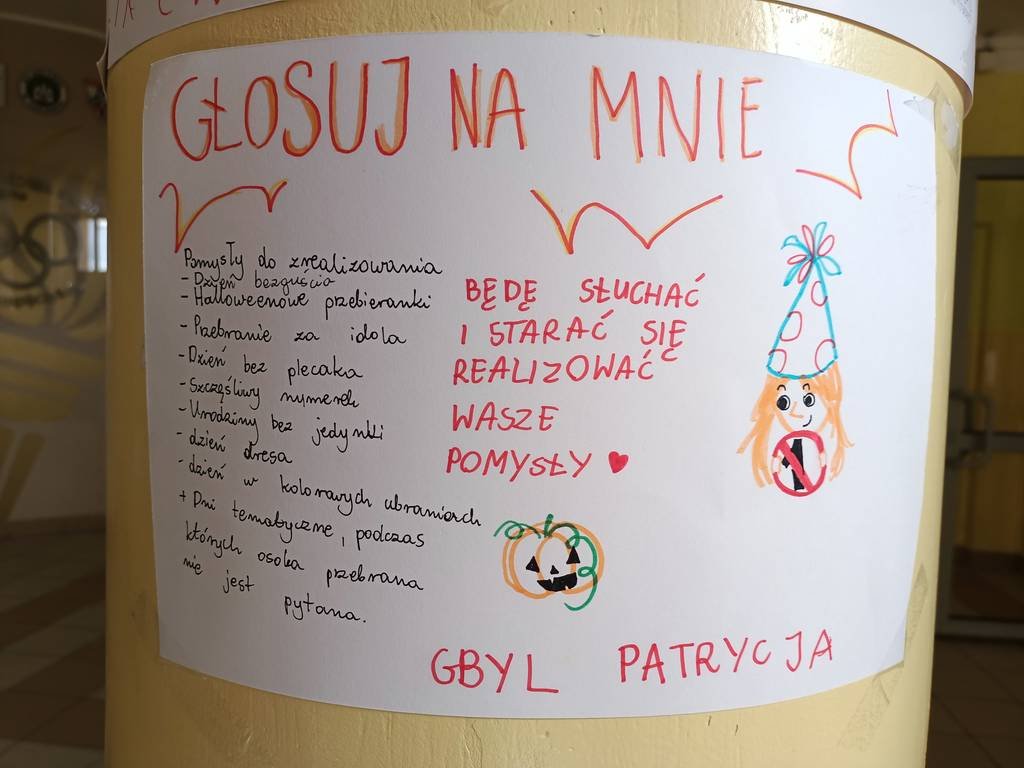 GŁOSUJ NA MNIE
Pomysły do zrealizowania
- Dzień bezguścia
- Halloweenowe przebieranki
- Przebranie za idola
- Dzień bez plecaka
- Szczęśliwy numerek
- Urodziny bez jedynki
- dzień dresa
- dzień w kolorowych ubraniach
+ Dni tematyczne, podczas
których osoba przebrana
nie jest pytana.
BĘDĘ SŁUCHAĆ
I STARAĆ SIĘ
REALIZOWAĆ
WASZE
POMYSŁY ♥
1
GBYL PATRYCJA